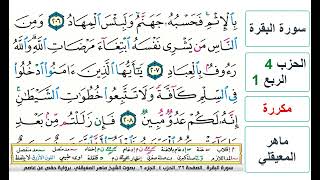 بِٱلۡإِثۡمِۚ فَحَسۡبُهُۥ جَهَنَّمُۖ وَلَبِئۡسَ ٱلۡمِهَادُ ٢٠٦ وَمِنَ
ٱلنَّاسِ مَن يَشۡرِي نَفۡسَهُ ٱبۡتِغَآءَ مَرۡضَاتِ ٱللَّهِۚ وَٱللَّهُ
رَءُوفُۢ بِٱلۡعِبَادِ ٢٠٧ يَٰٓأَيُّهَا ٱلَّذِينَ ءَامَنُواْ ٱدۡخُلُواْ
فِي ٱلسِّلۡمِ كَآفَّةٗ وَلَا تَتَّبِعُواْ خُطُوَٰتِ ٱلشَّيۡطَٰنِۚ
إِنَّهُۥ لَكُمۡ عَدُوّٞ مُّبِينٞ ٢٠٨
سورة البقرة
الحزب 4
الربع 1
مكررة
ماهر
المعيقلي